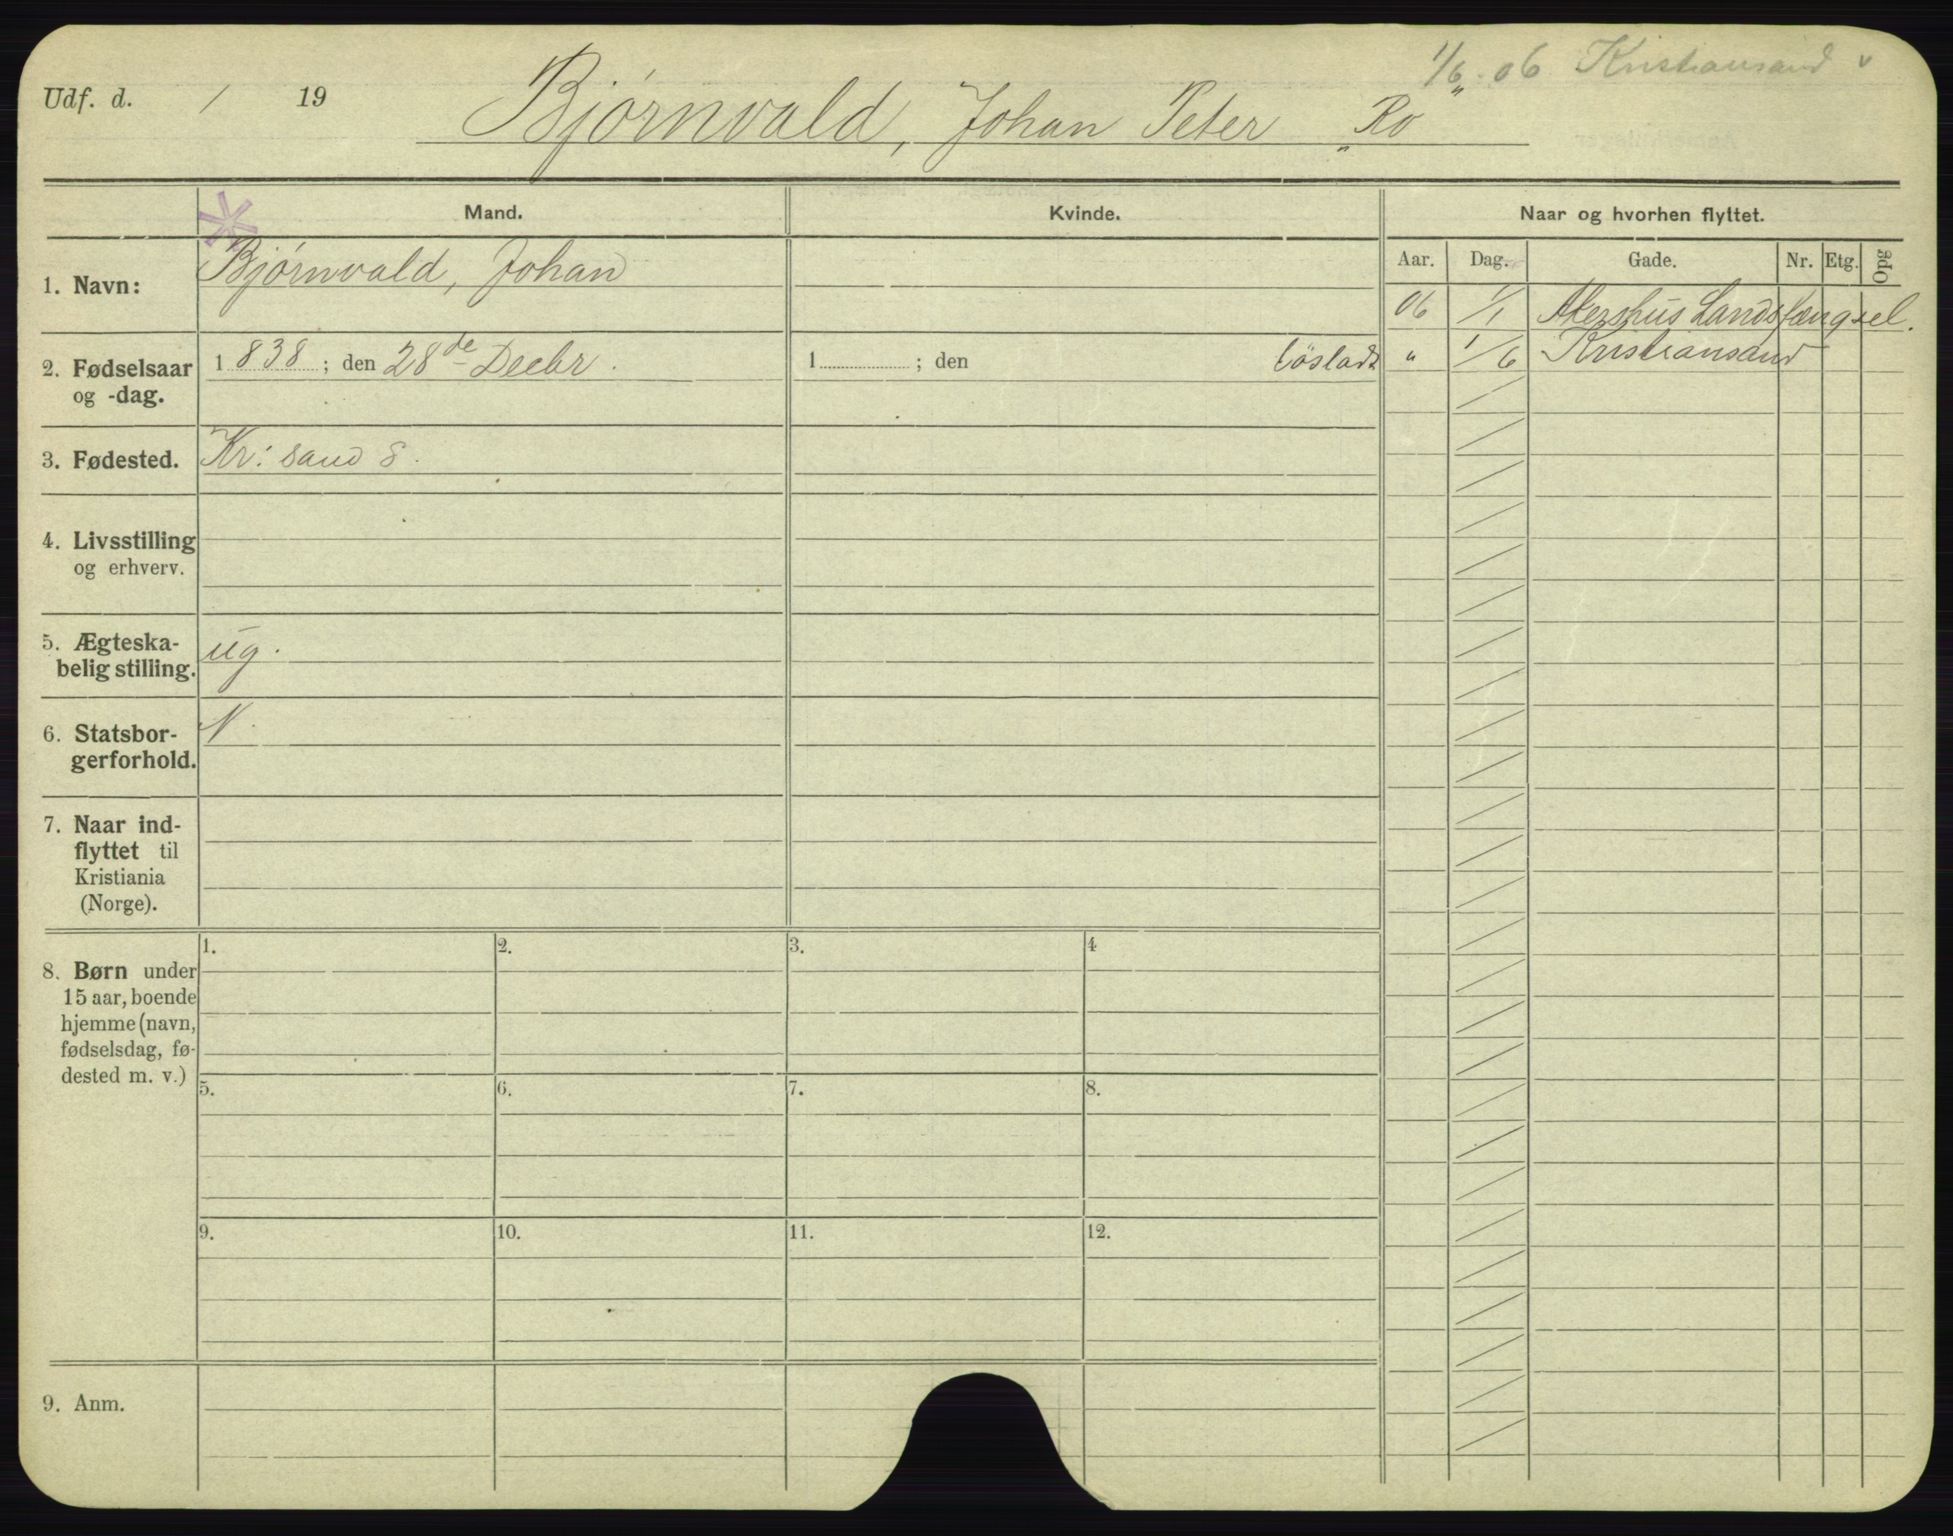 1/6 06 Kristiansand v
Udf. d. / 19
Bjørnvald, Johan Peter "Ro"
Mand. Kvinde. Naar og hvorhen flyttet.
Aar. Dag. Gade. Nr. Etg. Opg
1. Navn: Bjørnvald, Johan
06 1/1 Akershus Landsfængsel.
2. Fødselsaar 1838; den 28de Decbr. 1 ; den løsladt " 1/6 Kristiansand
og -dag.
3. Fødested. Kr:sand S.
4. Livsstilling
og erhverv.
5. Ægteska-
belig stilling. ug.
6. Statsbor- N.
gerforhold.
7. Naar ind-
flyttet til
Kristiania
(Norge).
8. Børn under
15 aar, boende
hjemme (navn,
fødselsdag, fø-
dested m. v.)
1. 2. 3. 4
5. 6. 7. 8.
9. 10. 11. 12.
9. Anm.